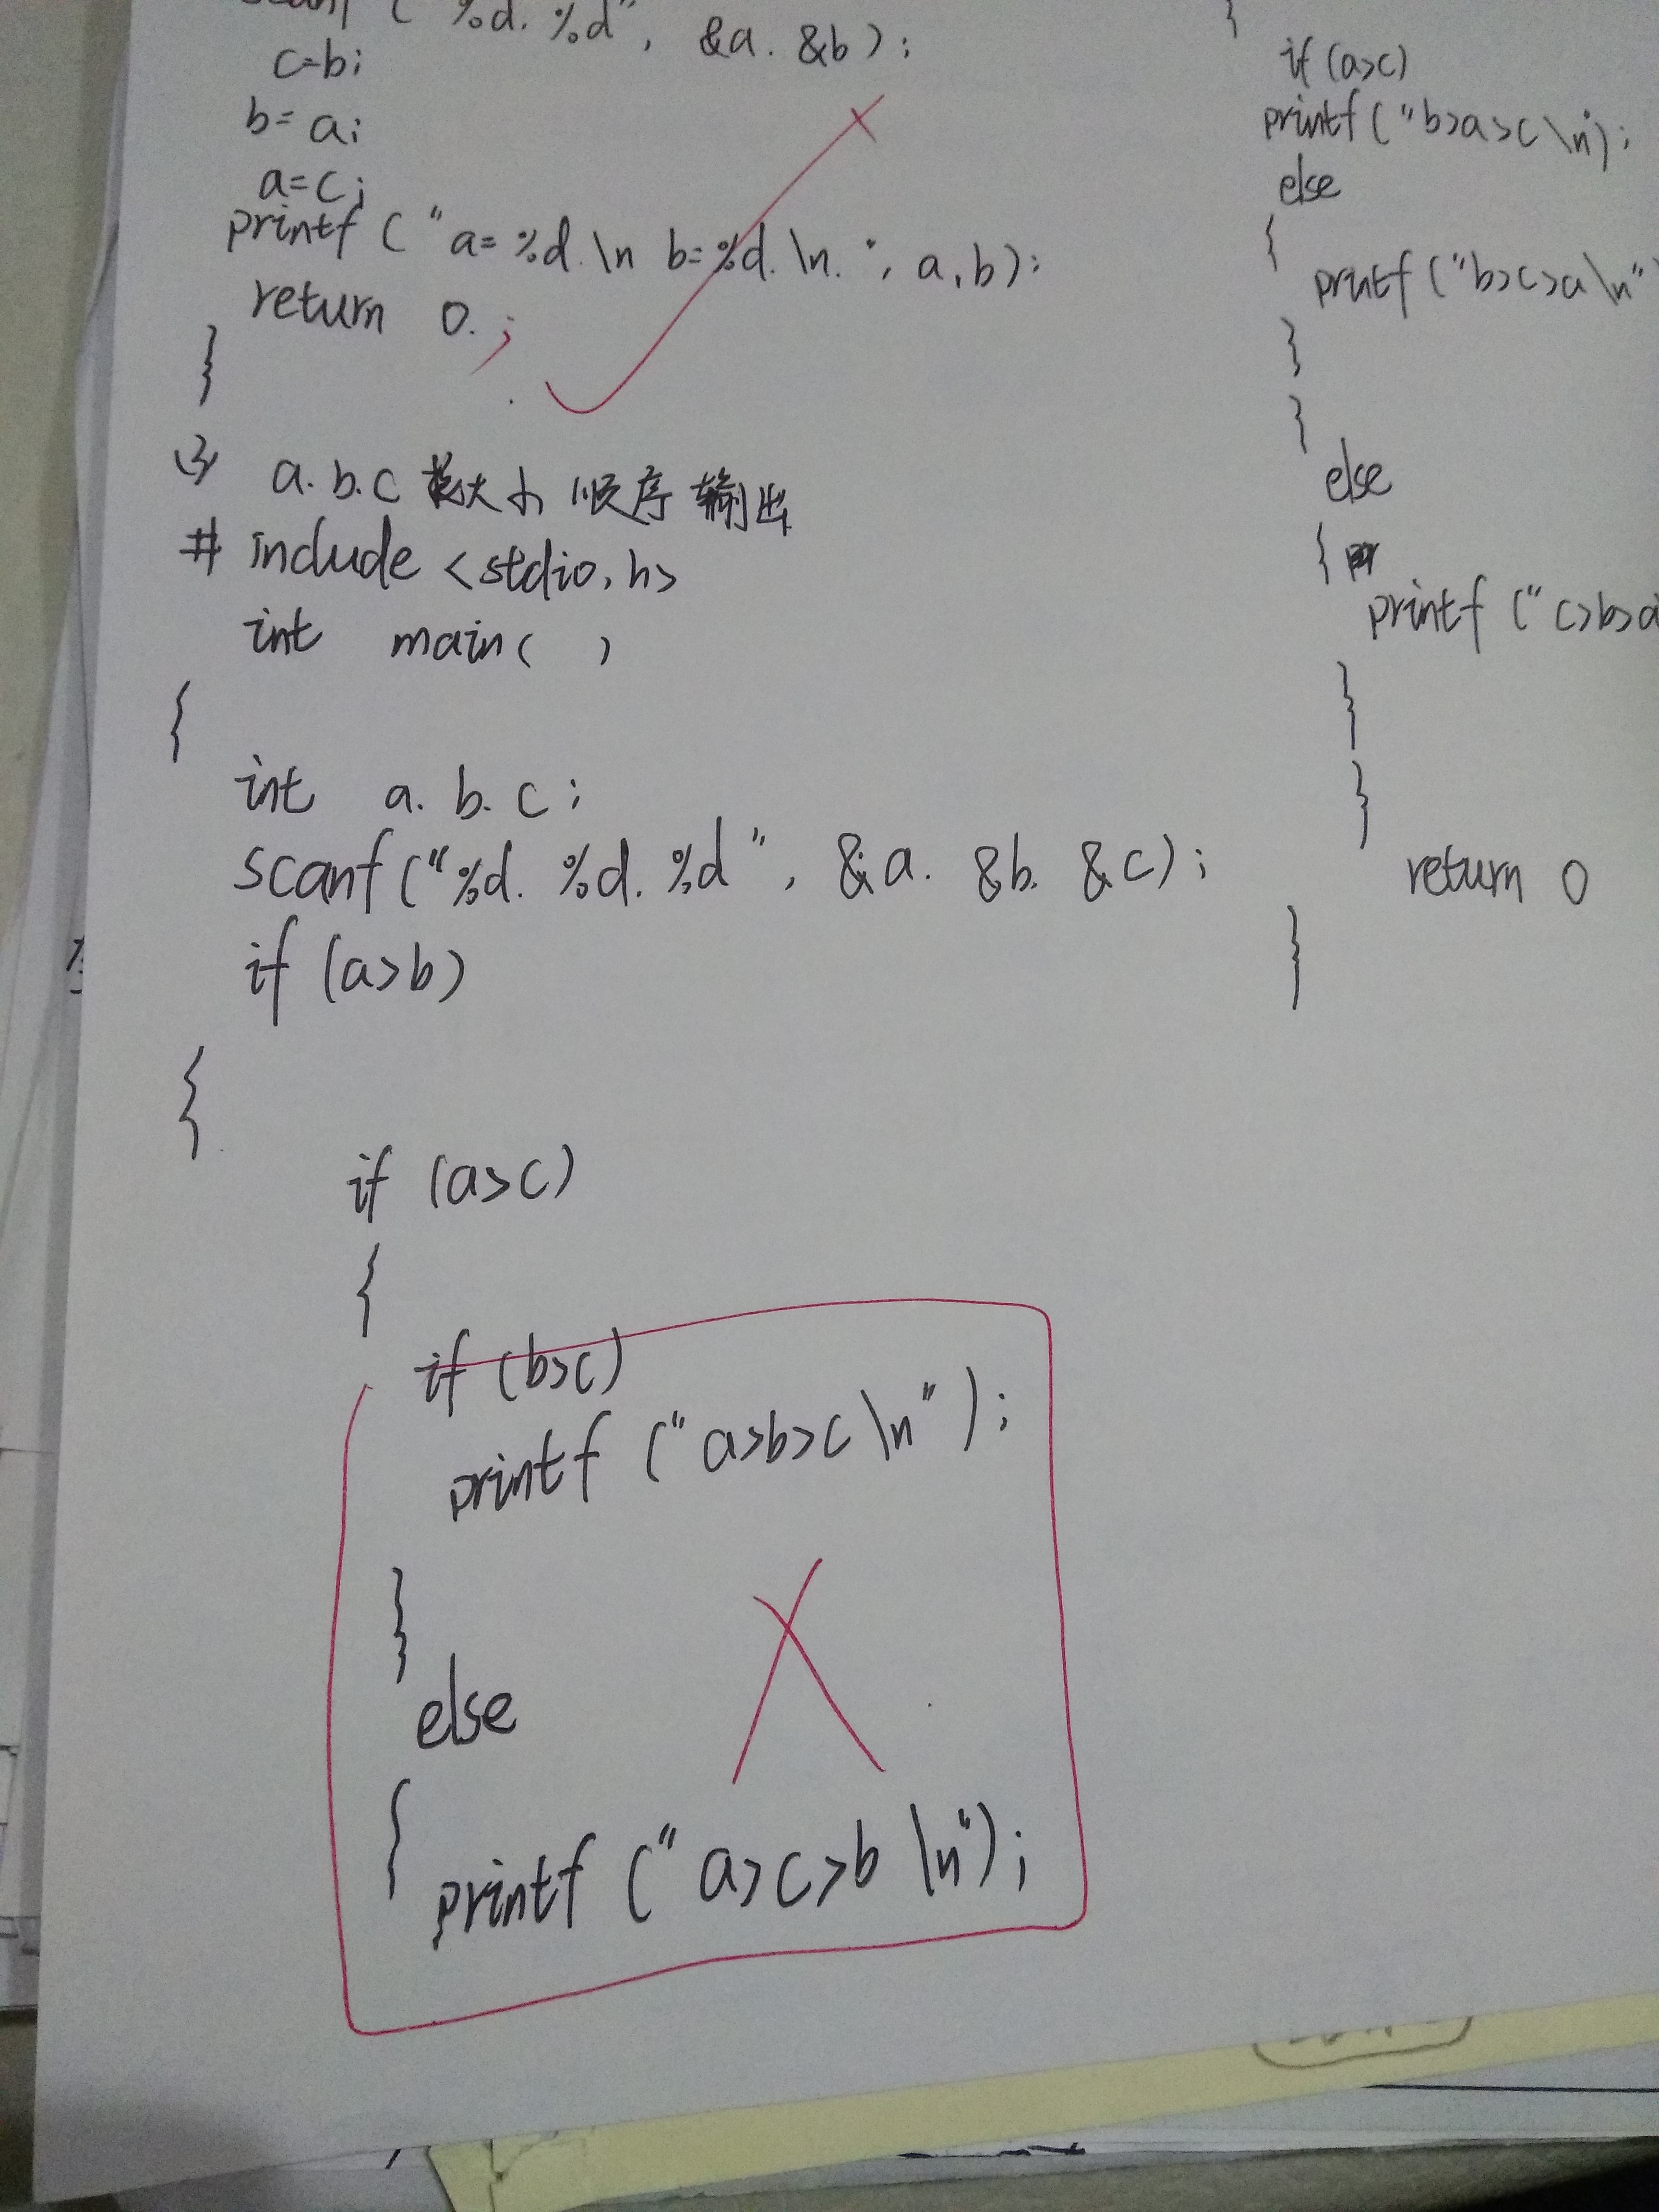 scanf ( "%d. %d", &a. &b);
c=b;
b= a;
a=c;
printf ( "a= %d. \n b= %d. \n. ", a, b);
return 0. ;
}
(3) a.b.c 按大小顺序输出
# include <stdio.h>
int main( )
{
int a. b. c ;
scanf ("%d. %d. %d ", &a. &b. &c) ;
if (a>b)
{
if (a>c)
{
if (b>c)
printf ("a>b>c \n" );
}
else
{
printf (" a>c>b \n");
{
if (a>c)
printf ( "b>a>c \n");
else
{
printf ("b>c>a \n"
}
}
else
{
printf (" c>b>a
}
}
return 0
}